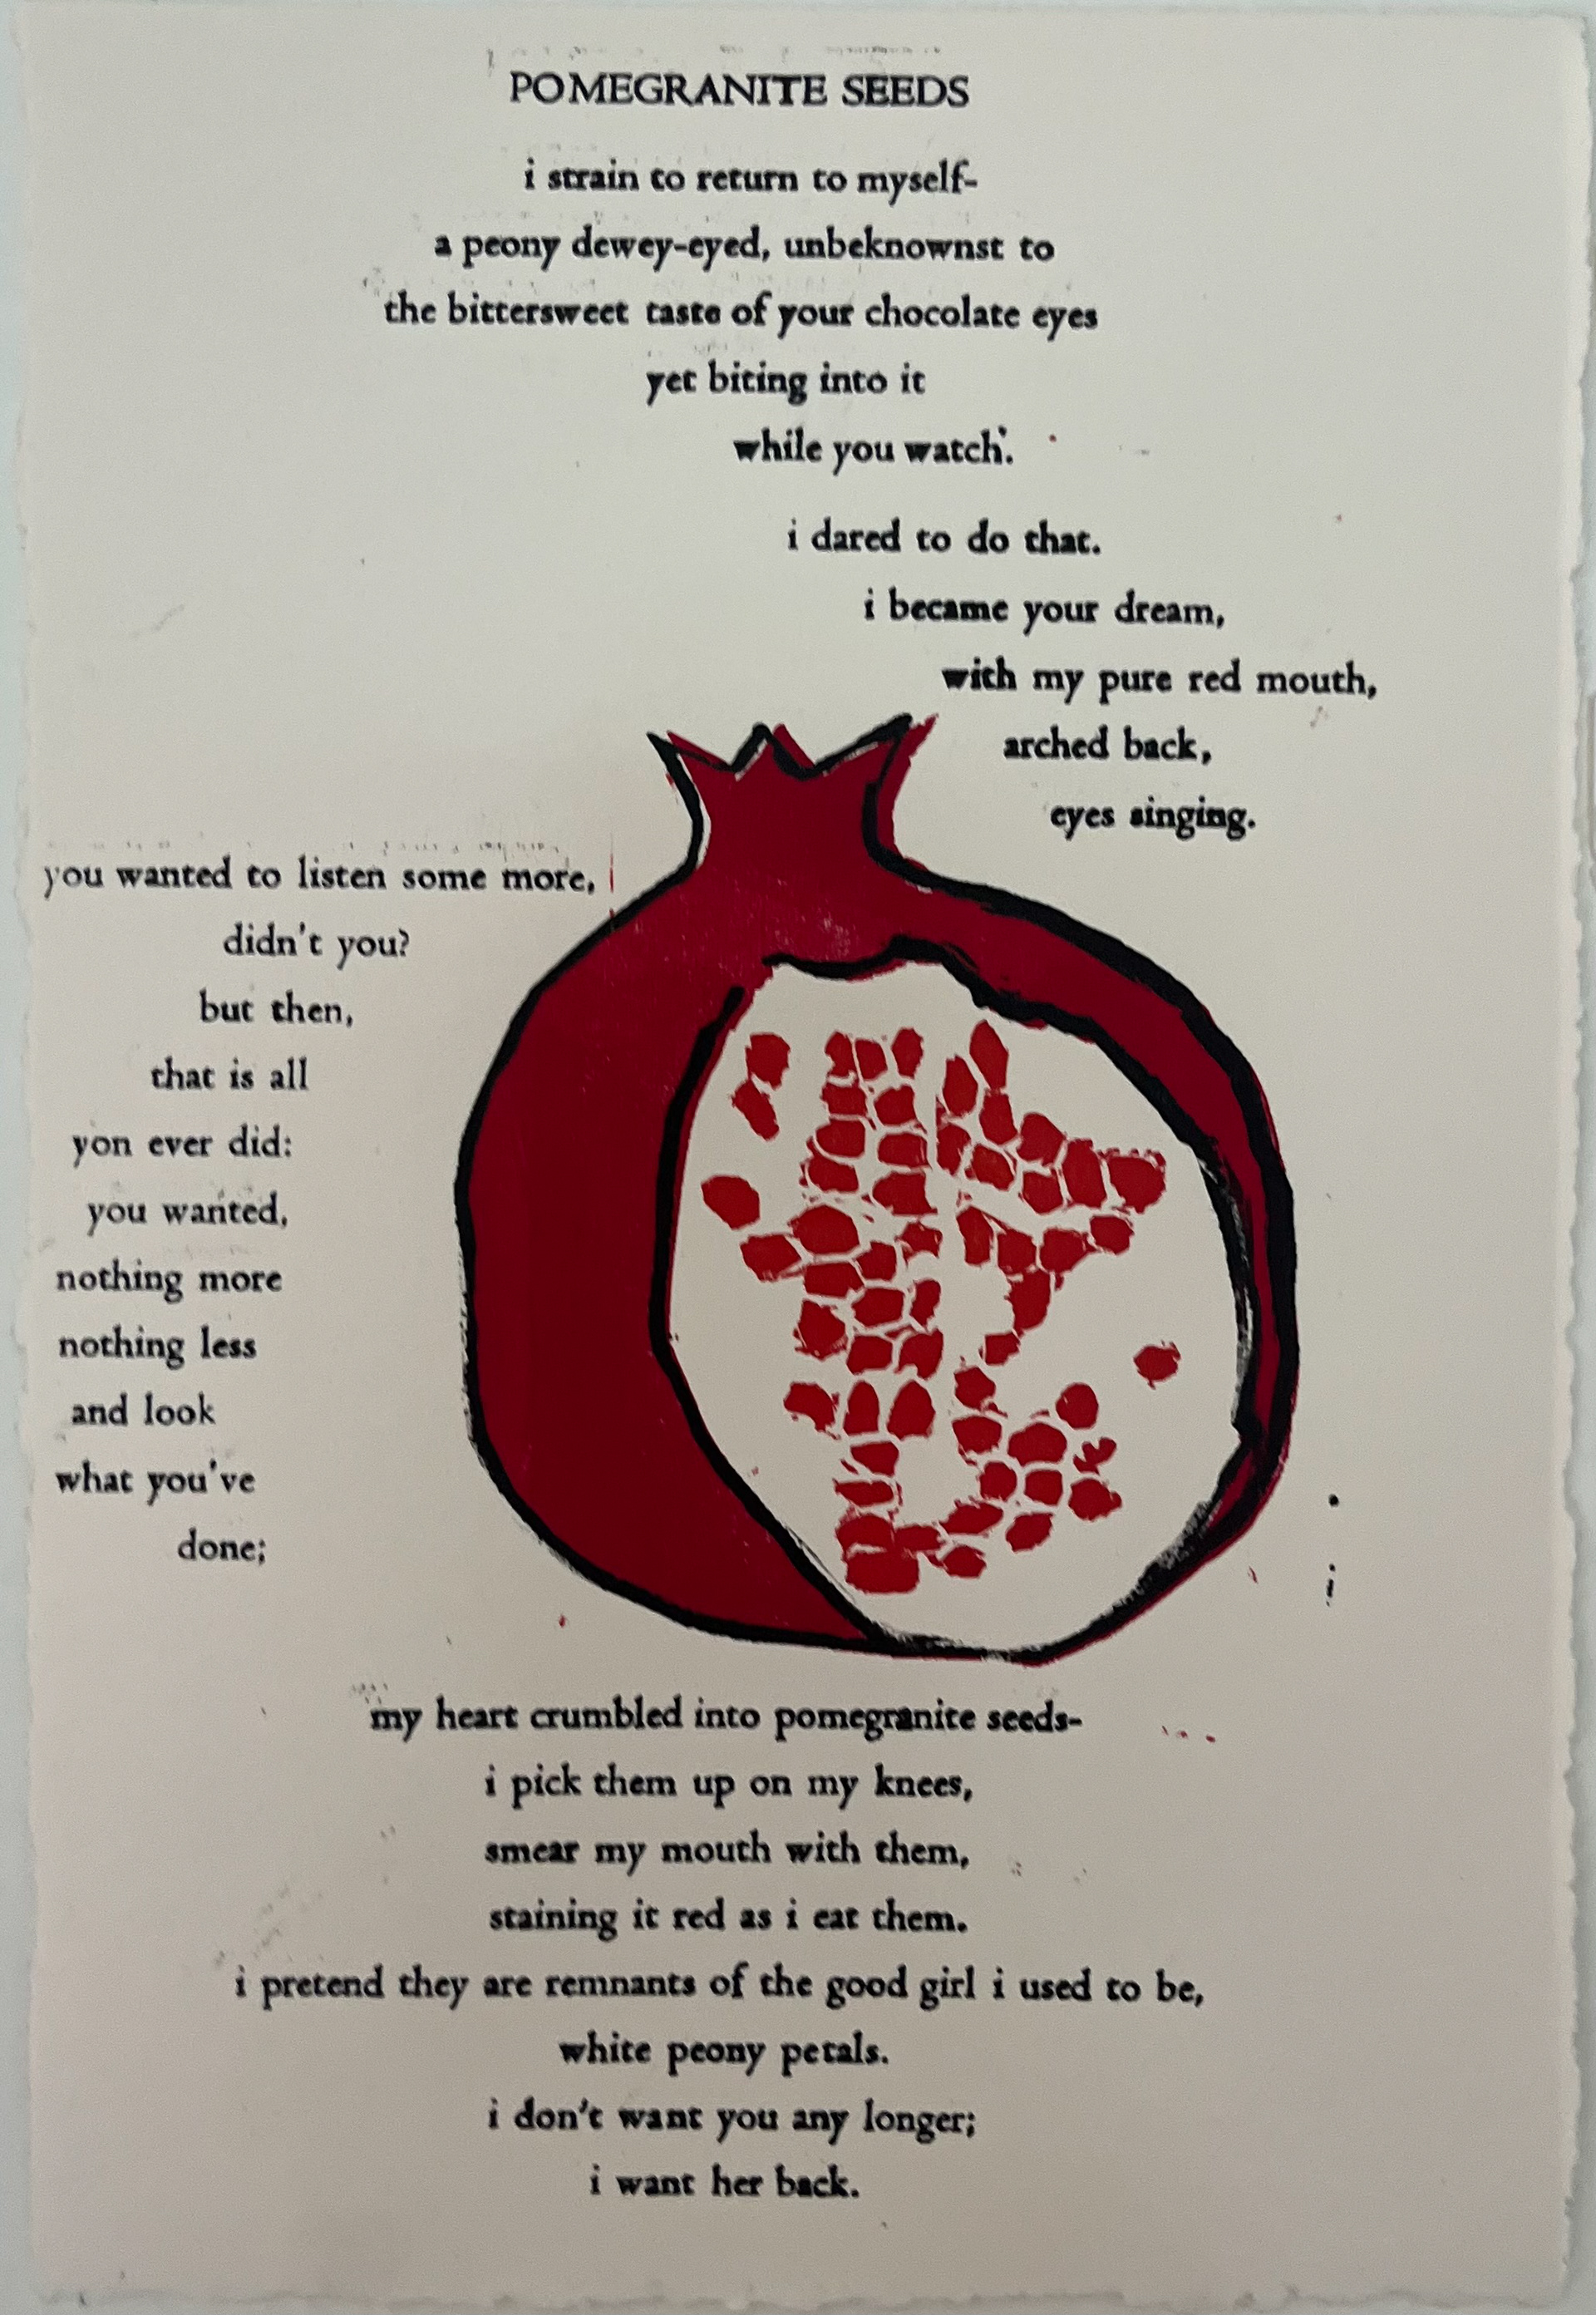 POMEGRANITE SEEDS
i strain to return to myself-
a peony dewey-eyed, unbeknownst to
the bittersweet taste of your chocolate eyes
yet biting into it
while you watch.
i dared to do that.
i became your dream,
with my pure red mouth,
arched back,
eyes singing.
you wanted to listen some more,
didn't you?
but then,
that is all
yon ever did:
you wanted,
nothing more
nothing less
and look
what you've
done;
my heart crumbled into pomegranite seeds-
i pick them up on my knees,
smear my mouth with them,
staining it red as i eat them.
i pretend they are remnants of the good girl i used to be,
white peony petals.
i don't want you any longer;
i want her back.